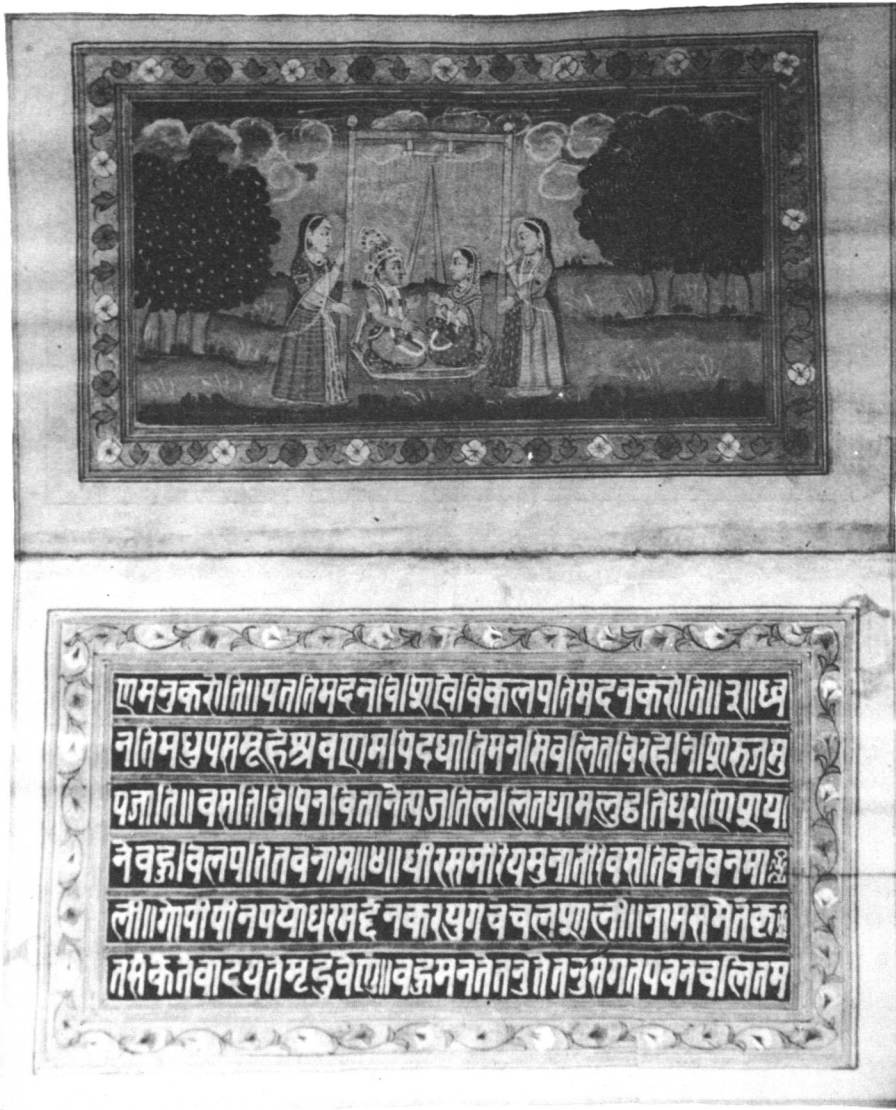 णमनुकरोति॥पततिमदनविशिखैविकलपतिमदनकरोति॥३॥ध्व
नतिमधुपसमूहेश्रवणमपिदधातिमनसिवलितविरहेनिशिरुजमु
पजाति॥वसतिविपिनवितानेत्यजतिललितधामलुठतिधरणिशया
नेवहुविलपतितवनाम॥४॥धीरसमीरेयमुनातीरेवसतिवनेवनमा
ली॥गोपीपीनपयोधरमर्द्दनकरयुगचंचलशाली॥नामसमेतंकृ
तसंकेतंवादयतेमृदुवेणुं॥वहुमनतेतनुतेतनुसंगतपवनचलितम